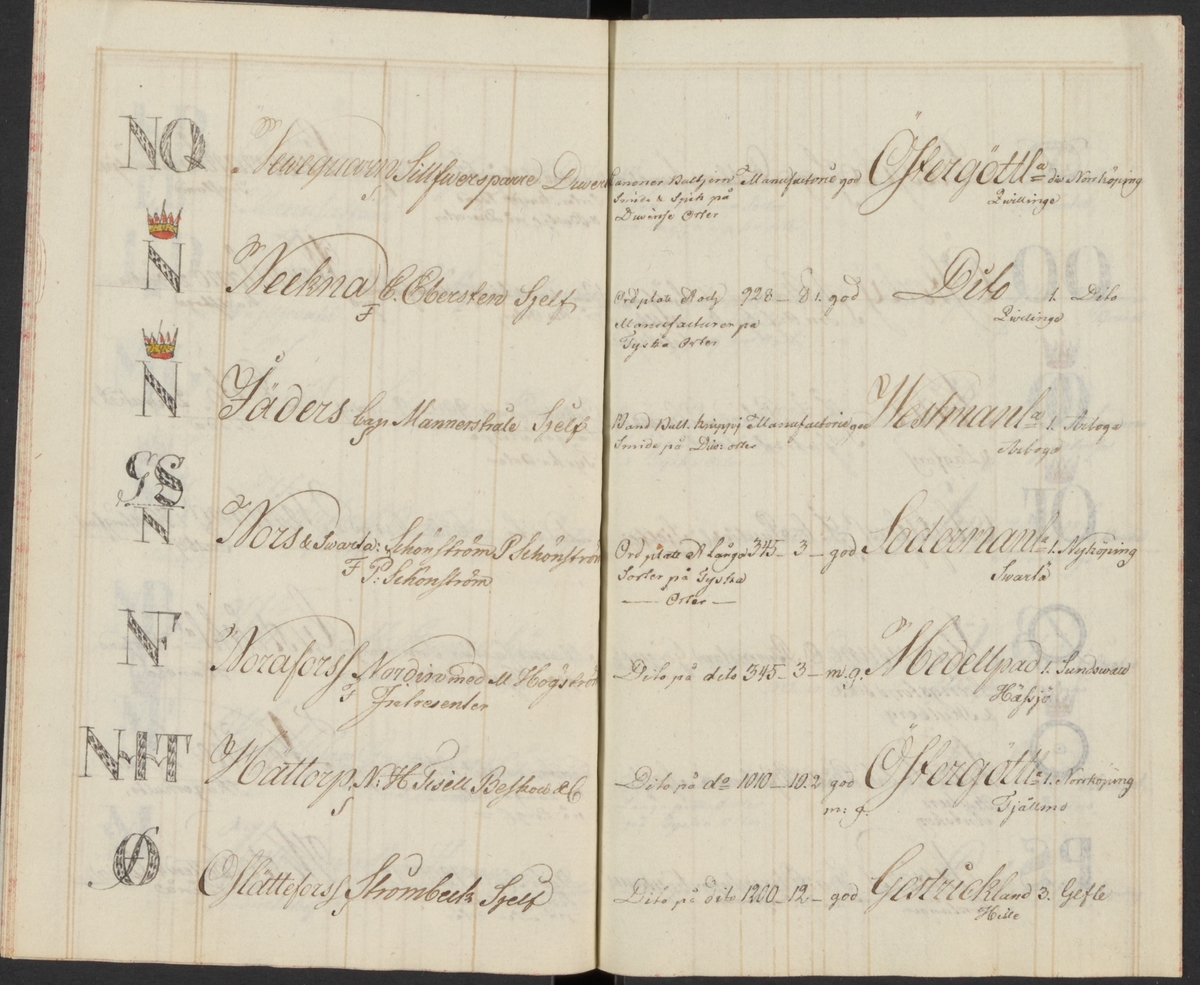 NQ Newequarn Sillfwersparre Canoner Valtjern Manufactorie god Östergöttl.a div Norrköping
Smide & Spik på Qwillinge
Diverse Orter
N Neekna C. Ebersten Sjelf Ord plate 928 – 8 1. god Dito 1. Dito
F Manufacturer på Qwillinge
Tyska Orter
N Jäders Cap Mannerstråle Sjelf Band Manufactorie god Westmanl.a 1. Arboga
S Smide på Div: orter Arboga
GS
N Nors & Swarta: Schönström P Schönström Ord plate Långa 345 – 3 – god Södermanl.a 1. Nyköping
F P: Schönström Sorter på Tyska Swarta
— Orter —
NF Noraforss Nordin med M Högström Dito på dito 345 – 3 – m. g. Medellpad 1. Sundswall
F Intresenter Hässjö
NHT Hättorp N: H Tisell Beskow & C Dito på do 1010 – 10.2 god Östergöttl.a 1. Norrköping
S m: g. Tjällmo
Oslätteforss Strömbeck Sjelf Dito på dito 1200 – 12 – god Gestrickland 3. Gefle
S Hille